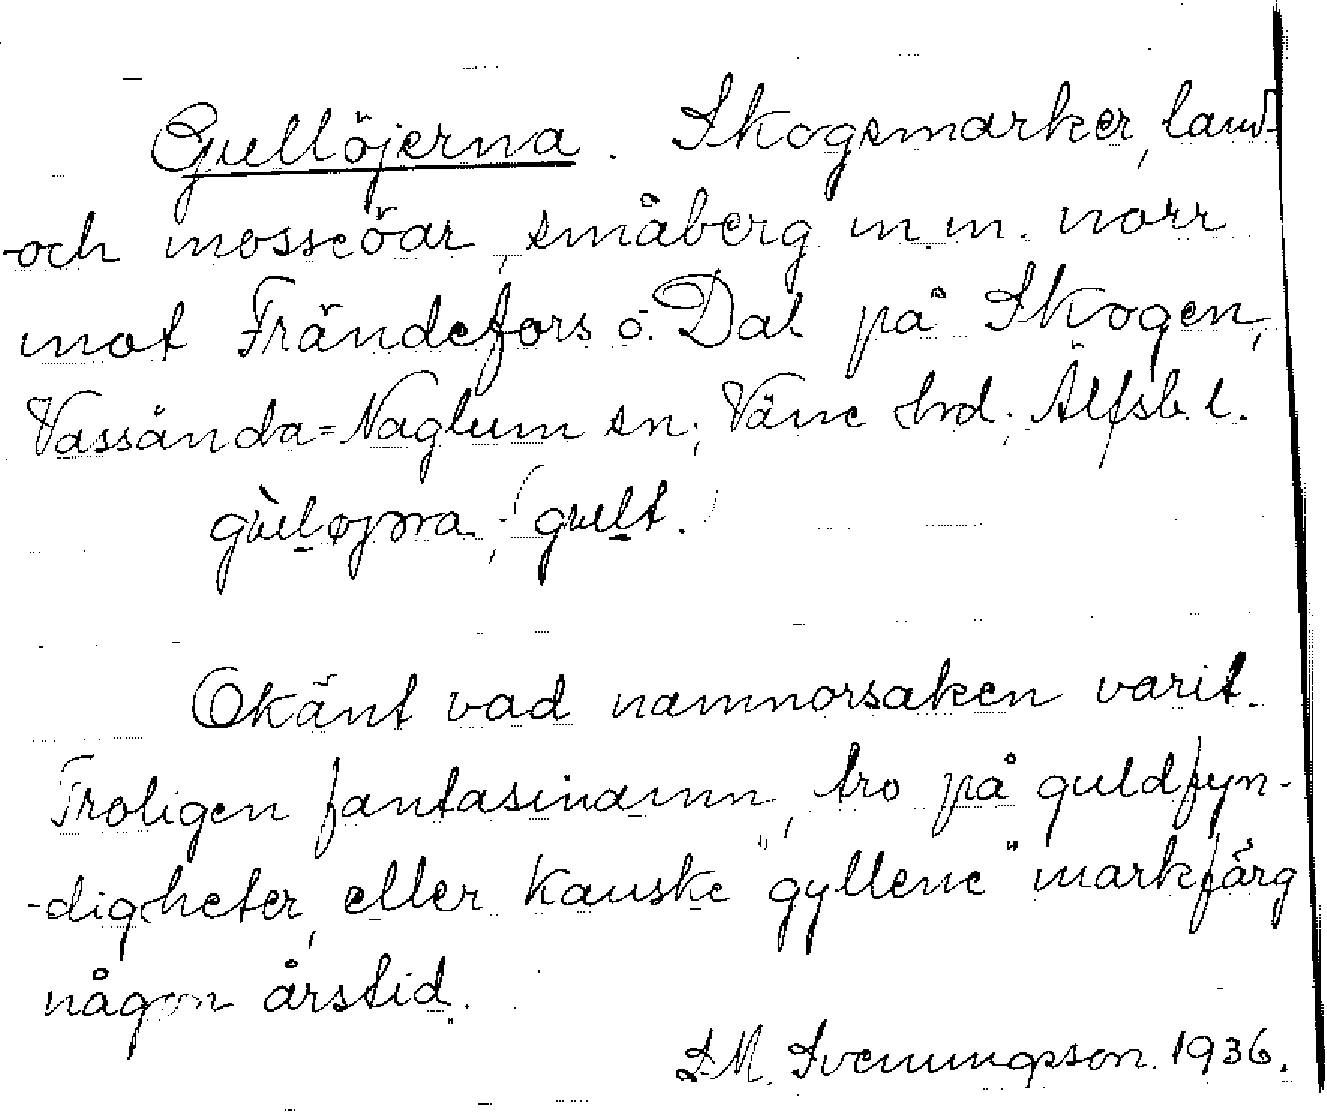 Gullöjerna. Skogsmarker, land-
-och mosseöar, småberg m.m. norr
mot Frändefors o. Dal på Skogen,
Vassända=Naglum sn; Väne hrd; Älfsb. l.
gùløjəra; (gult.)
Okänt vad namnorsaken varit.
Troligen fantasinamn, tro på guldfyn-
-digheter, eller kanske "gyllene" markfärg
någon årstid.
S.M. Svenungsson. 1936.